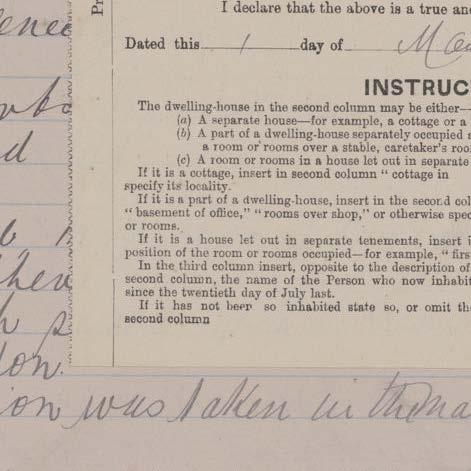 Pr
I declare that the above is a true and
Dated this 1 day of
INSTRUC
The dwelling-house in the second column may be either—
(a) A separate house—for example, a cottage or a
(b) A part of a dwelling-house separately occupied
a room or rooms over a stable, caretaker's roo
(c) A room or rooms in a house let out in separate
If it is a cottage, insert in second column "cottage in
specify its locality.
If it is a part of a dwelling-house, insert in the second col
"basement of office," "rooms over shop," or otherwise spec
or rooms.
If it is a house let out in separate tenements, insert i
position of the room or rooms occupied—for example, "firs
In the third column insert, opposite to the description of
second column, the name of the Person who now inhabit
since the twentieth day of July last.
If it has not been so inhabited state so, or omit the
second column
ion was taken in the na